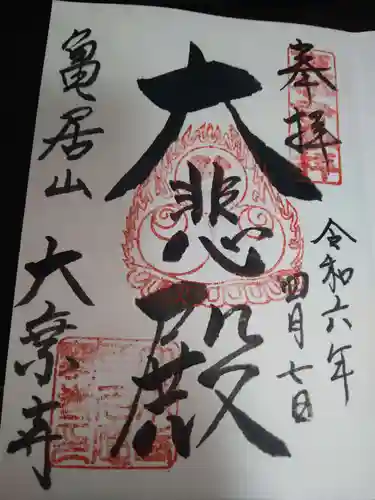 奉拝
令和六年
四月七日
大悲殿
亀居山
大棠寺